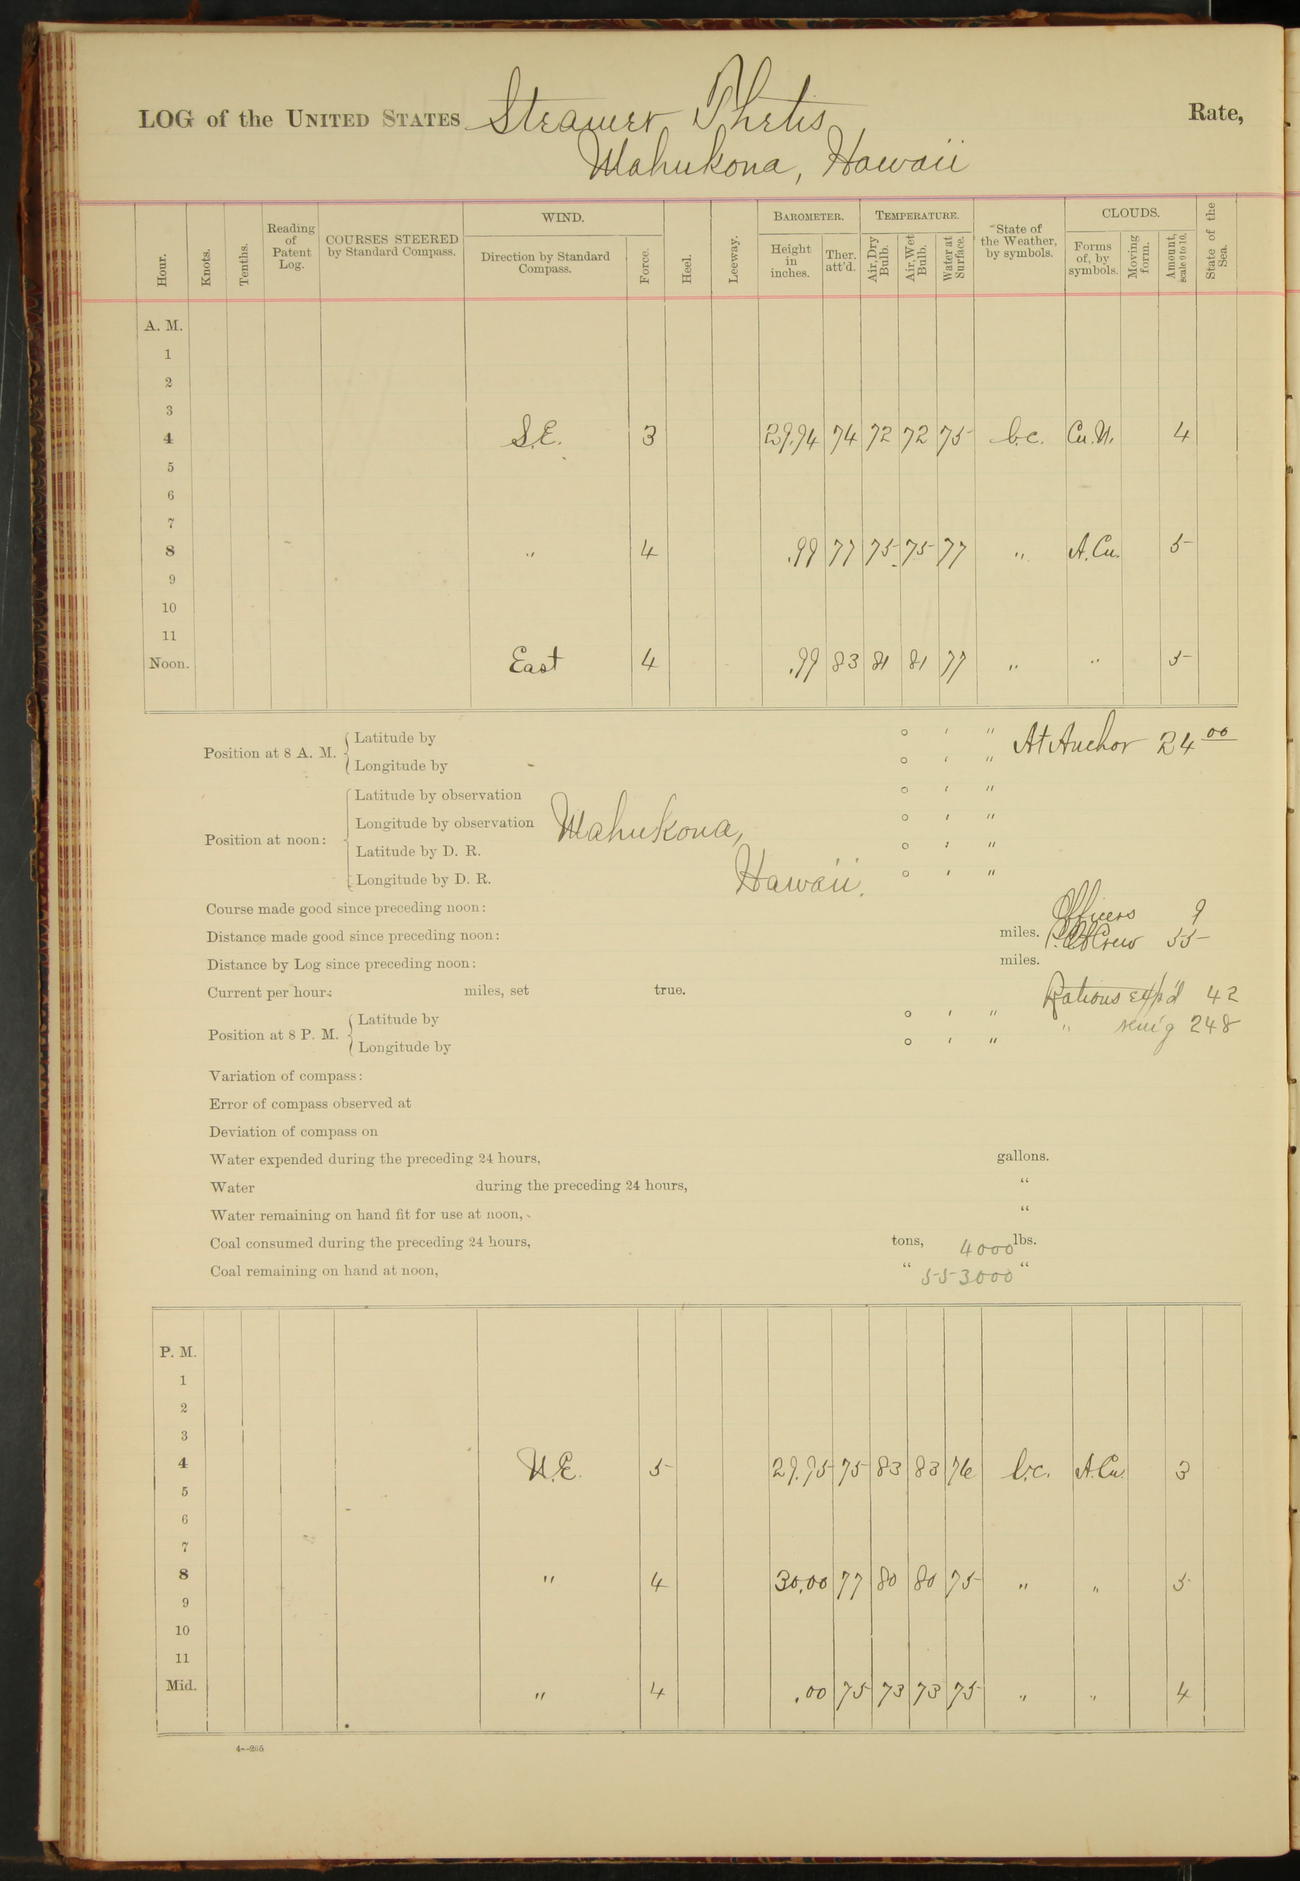 LOG of the UNITED STATES Steamer Thetis Rate,
Mahukona, Hawaii
Hour. Knots. Tenths. Reading of Patent Log. COURSES STEERED by Standard Compass. WIND. Direction by Standard Compass. Force. Heel. Leeway. BAROMETER. Height in inches. Ther. att'd. TEMPERATURE. Air, Dry Bulb. Air, Wet Bulb. Water at Surface. State of the Weather, by symbols. CLOUDS. Forms of, by symbols. Moving form. Amount, scale 0 to 10. State of the Sea.
A. M.
1
2
3
4 S.E. 3 29.94 74 72 72 75 b.c. Cu.N. 4
5
6
7
8 " 4 .99 77 75 75 77 " A.Cu. 5
9
10
11
Noon. East 4 .99 83 81 81 77 " " 5
Position at 8 A. M. Latitude by ° ′ ″ At Anchor 24 00
Longitude by ° ′ ″
Position at noon: Latitude by observation ° ′ ″
Longitude by observation Mahukona, ° ′ ″
Latitude by D. R. ° ′ ″
Longitude by D. R. Hawaii. ° ′ ″
Course made good since preceding noon: Officers 9
Distance made good since preceding noon: miles. Crew 55
Distance by Log since preceding noon: miles.
Current per hour: miles, set true. Rations exp'd 42
Position at 8 P. M. Latitude by ° ′ ″ " rem'g 248
Longitude by ° ′ ″
Variation of compass:
Error of compass observed at
Deviation of compass on
Water expended during the preceding 24 hours, gallons.
Water during the preceding 24 hours, "
Water remaining on hand fit for use at noon, "
Coal consumed during the preceding 24 hours, tons, 4000 lbs.
Coal remaining on hand at noon, " 553000 "
P. M.
1
2
3
4 N.E. 5 29.95 75 83 83 76 b.c. A.Cu. 3
5
6
7
8 " 4 30.00 77 80 80 75 " " 5
9
10
11
Mid. " 4 .00 75 73 73 75 " " 4
4—265